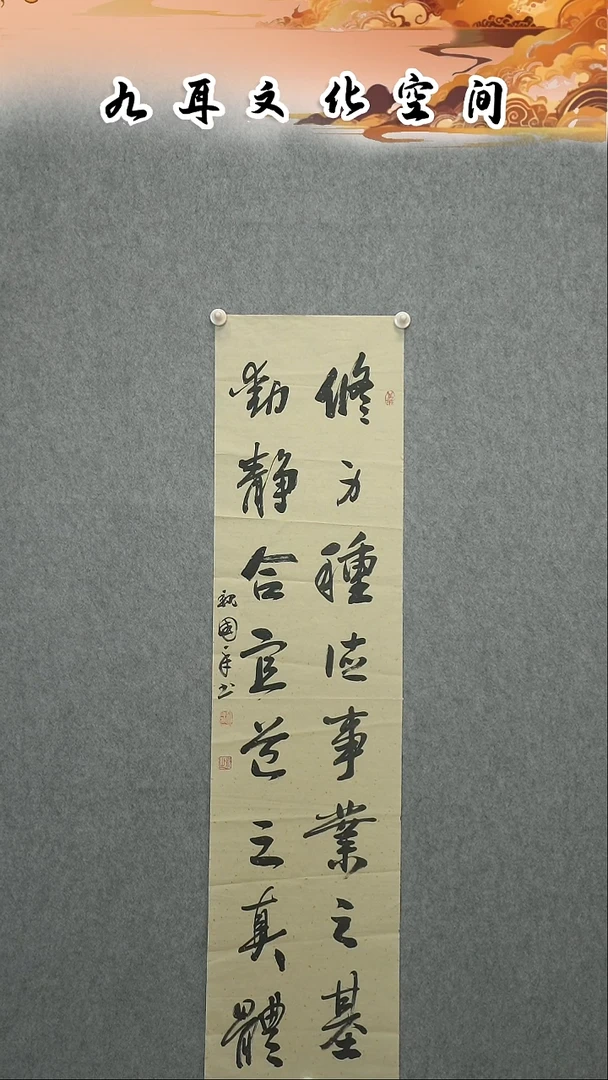 九耳文化空间
修身種德事業之基
動静合宜道之真體
國平书